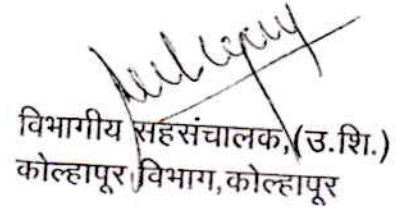 विभागीय सहसंचालक,(उ.शि.)
कोल्हापूर विभाग,कोल्हापूर